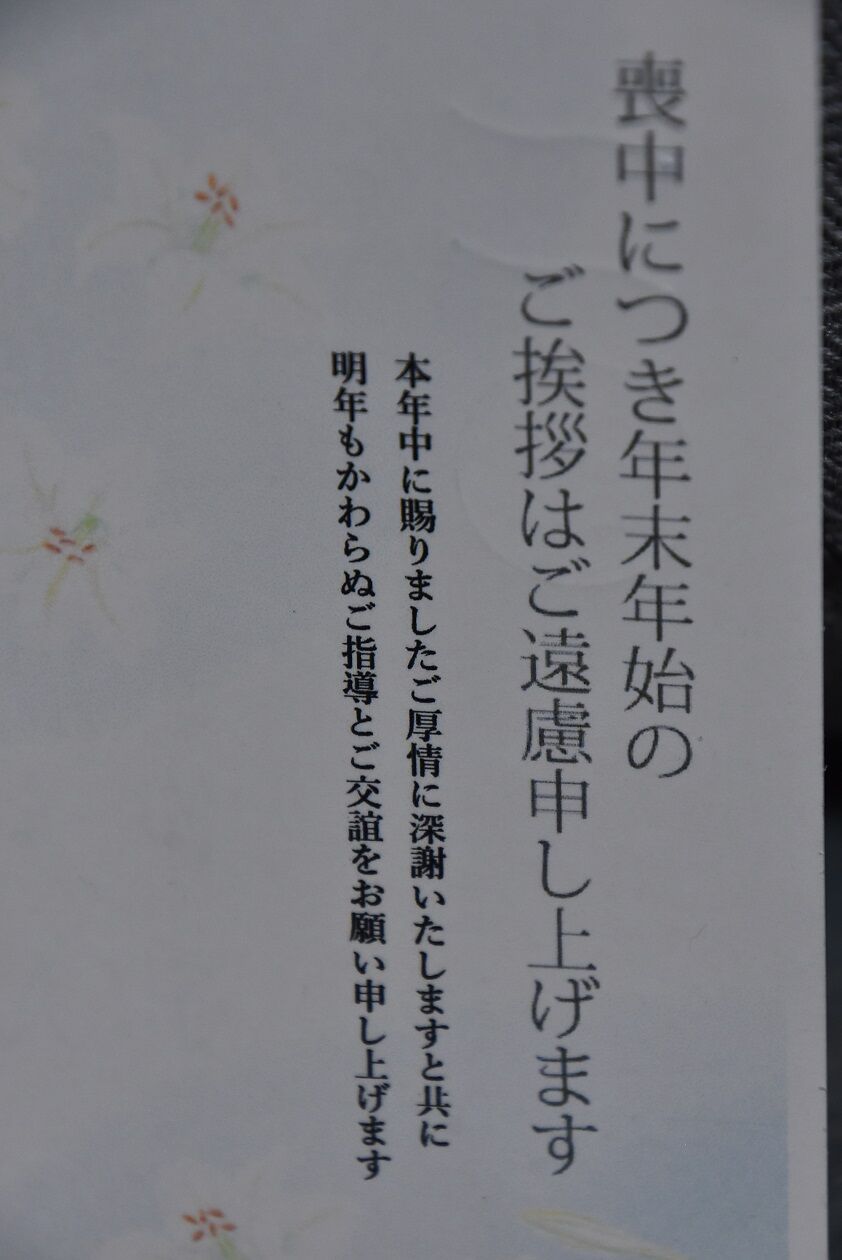 喪中につき年末年始の
ご挨拶はご遠慮申し上げます
本年中に賜りましたご厚情に深謝いたしますと共に
明年もかわらぬご指導とご交誼をお願い申し上げます